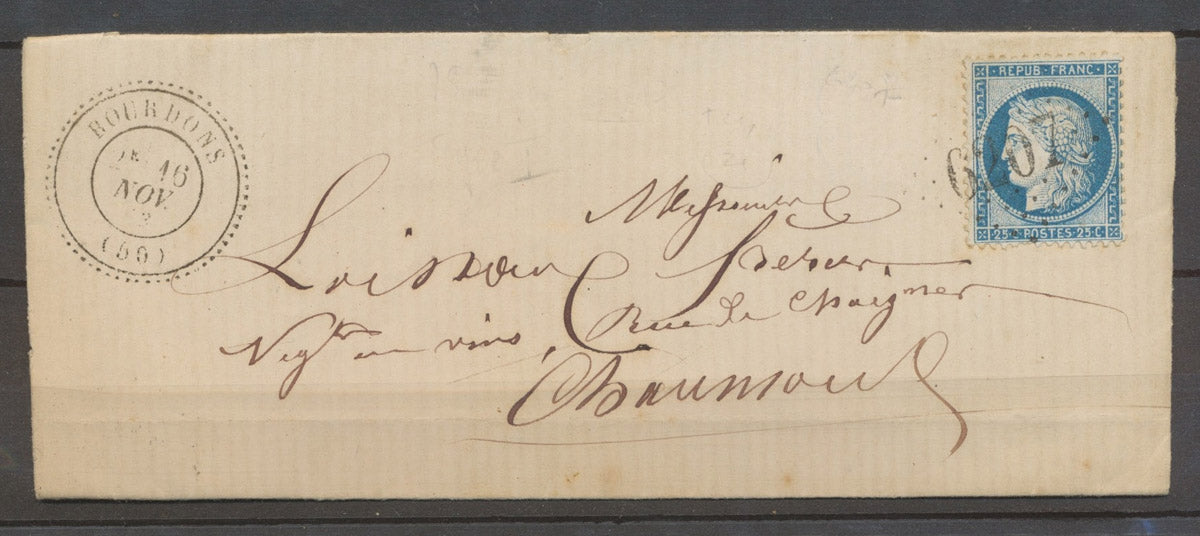 BOURDONS
2E 16
NOV.
REPUB FRANC
6207
25C POSTES 25C
Messieurs
Loiseau Frères
Negts en vins, Rue de Choignes
Chaumont